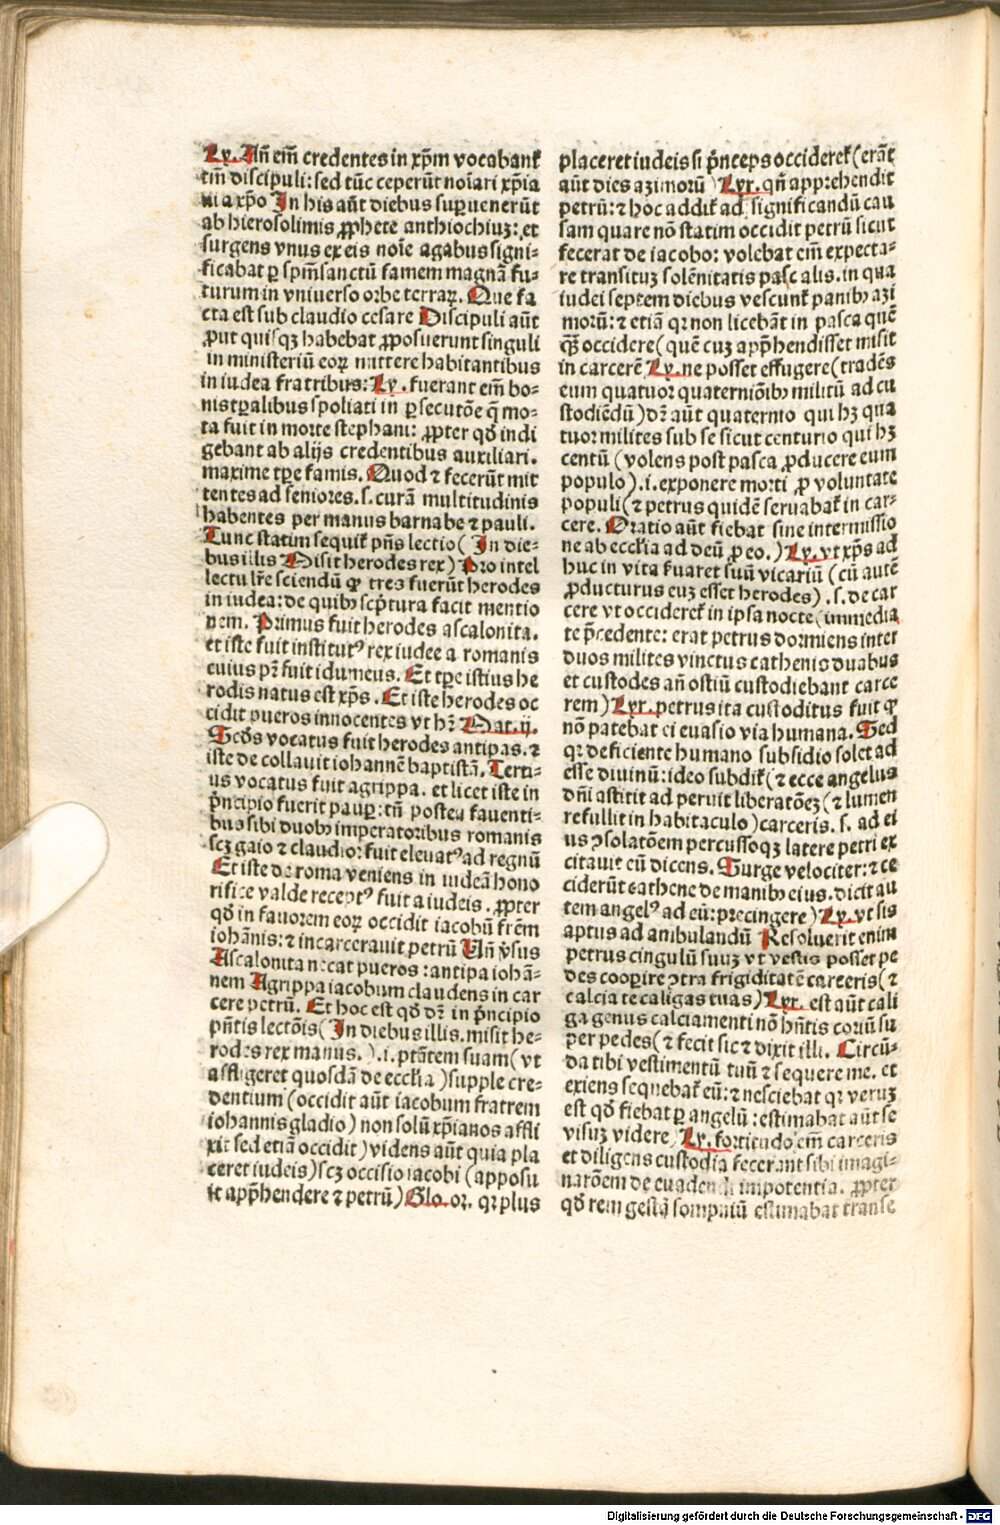 Ly. Añ em̃ credentes in xp̃m vocabant᷑
tm̃ discipuli: sed tūc ceperūt noĩari xp̃ia
ni a xp̃o In his aūt diebus suꝑuenerūt
ab hierosolimis ꝓphete anthiochiuꝫ: et
surgens vnus ex eis noĩe agabus signi-
ficabat ꝑ spm̃ sanctū famem magnā fu-
turum in vniuerso orbe terraꝝ. Que fa
cta est sub claudio cesare Discipuli aūt
ꝓut quisqꝫ habebat ꝓposuerunt singuli
in ministeriū eoꝝ mittere habitantibus
in iudea fratribus: Ly. fuerant em̃ bo-
nis tꝑalibus spoliati in ꝑsecutōe q̄ mo-
ta fuit in morte stephani: ꝓpter qd̃ indi
gebant ab alijs credentibus auxiliari.
maxime tꝑe famis. Quod ⁊ fecerūt mit
tentes ad seniores. s. curā multitudinis
habentes per manus barnabe ⁊ pauli.
Tunc statim sequit᷑ pñs lectio( In die-
bus illis Misit herodes rex) Pro intel
lectu lr̃e sciendū ꝙ tres fuerūt herodes
in iudea: de quibꝫ sc̃ptura facit mentio
nem. Primus fuit herodes ascalonita.
et iste fuit institutꝰ rex iudee a romanis
cuius pr̃ fuit idumeus. Et tꝑe istius he
rodis natus est xp̃s. Et iste herodes oc
cidit pueros innocentes vt hr̃ Mat. ij.
Scd̃s vocatus fuit herodes antipas. ⁊
iste decollauit iohannē baptistā. Terti-
us vocatus fuit agrippa. et licet iste in
p̃ncipio fuerit pauꝑ: tñ postea fauenti-
bus sibi duobꝫ imperatoribus romanis
scꝫ gaio ⁊ claudio: fuit eleuatꝰ ad regnū
Et iste de roma veniens in iudeā hono
rifice valde receptꝰ fuit a iudeis. ꝓpter
qd̃ in fauorem eoꝝ occidit iacobū frēm
iohānis: ⁊ incarcerauit petrū Uñ ṽsus
Ascalonita necat pueros: antipa iohā-
nem Agrippa iacobum claudens in car
cere petrū. Et hoc est qd̃ dr̃ in p̃ncipio
pñtis lectōis( In diebus illis. misit he-
rodes rex manus.).i. ptātem suam( vt
affligeret quosdā de eccĺia) supple cre-
dentium (occidit aūt iacobum fratrem
iohannis gladio) non solū xp̃ianos affli
xit sed etiā occidit) videns aūt quia pla
ceret iudeis) scꝫ occisio iacobi (apposu
it app̃hendere ⁊ petrū) Glo. or. qꝛ plus
placeret iudeis si p̃nceps occideret᷑ (erāt
aūt dies azimorū) Lyr. qñ apprehendit
petrū: ⁊ hoc addit᷑ ad significandū cau
sam quare nō statim occidit petrū sicut
fecerat de iacobo: volebat em̃ expecta-
re transituꝫ solēnitatis pascalis. in qua
iudei septem diebus vescunt᷑ panibꝫ azi
morū: ⁊ etiā qꝛ non licebāt in pasca quē
q̃ꝫ occidere( quē cuꝫ app̃hendisset misit
in carcerē Ly. ne posset effugere( tradēs
eum quatuor quaterniōibꝫ militū ad cu
stodiēdū) dr̃ aūt quaternio qui hꝫ qua
tuor milites sub se sicut centurio qui hꝫ
centū (volens post pasca ꝓducere eum
populo).i. exponere morti ꝓ voluntate
populi( ⁊ petrus quidē seruabat᷑ in car-
cere. Oratio aūt fiebat sine intermissio
ne ab eccĺia ad deū ꝓ eo.) Ly. vt xp̃s ad
huc in vita ẜuaret suū vicariū (cū autē
ꝓducturus euꝫ esset herodes). s. de car
cere vt occideret᷑ in ipsa nocte( immedia
te p̃cedente: erat petrus dormiens inter
duos milites vinctus cathenis duabus
et custodes añ ostiū custodiebant carce
rem) Lyr. petrus ita custoditus fuit ꝙ
nō patebat ei euasio via humana. Sed
qꝛ deficiente humano subsidio solet ad
esse diuinū: ideo subdit᷑( ⁊ ecce angelus
dñi astitit ad petrū liberatōeꝫ( ⁊ lumen
refulsit in habitaculo) carceris. s. ad ei
us ꝯsolatōem percussoqꝫ latere petri ex
citauit eū dicens. Surge velociter: ⁊ ce
ciderūt cathene de manibꝫ eius. dicit au
tem angelꝰ ad eū: precingere) Ly. vt sis
aptus ad ambulandū Resoluerit enim
petrus cingulū suuꝫ vt vestis posset pe
des cooꝑire ↄtra frigiditatē carceris( ⁊
calcia te caligas tuas) Lyr. est aūt cali
ga genus calciamenti nō hñtis coriū su
per pedes( ⁊ fecit sic ⁊ dixit illi. Circū-
da tibi vestimentū tuū ⁊ sequere me. et
exiens sequebat᷑ eū: ⁊ nesciebat qꝛ veruꝫ
est qd̃ fiebat ꝑ angelū: estimabat aūt se
visuꝫ videre. Ly. fortitudo em̃ carceris
et diligens custodia fecerant sibi imagi-
natōem de euadendi impotentia. ꝓpter
qd̃ rem gestā sompniū estimabat transe
Digitalisierung gefördert durch die Deutsche Forschungsgemeinschaft - DFG